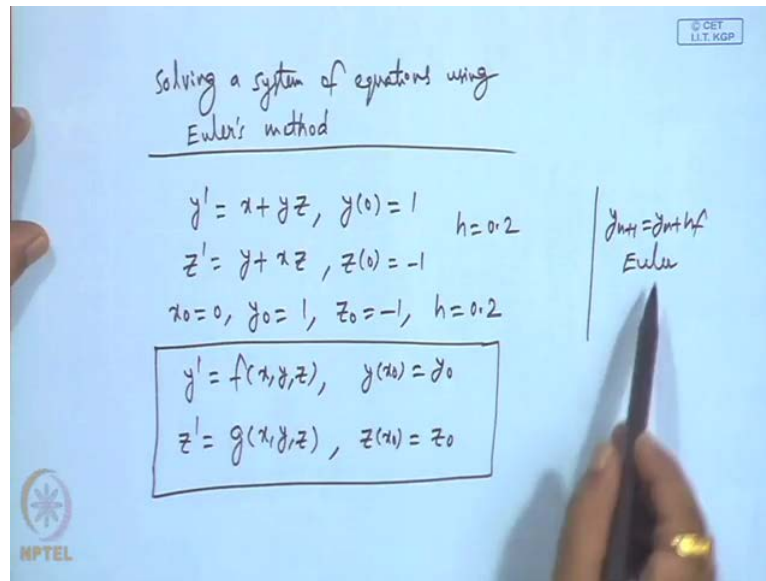 © CET
I.I.T. KGP
Solving a system of equations using
Euler's method
y' = x + yz, y(0) = 1
h = 0.2
z' = y + xz, z(0) = -1
x₀ = 0, y₀ = 1, z₀ = -1, h = 0.2
y' = f(x,y,z), y(x₀) = y₀
z' = g(x,y,z), z(x₀) = z₀
yₙ₊₁ = yₙ + hf
Euler
NPTEL